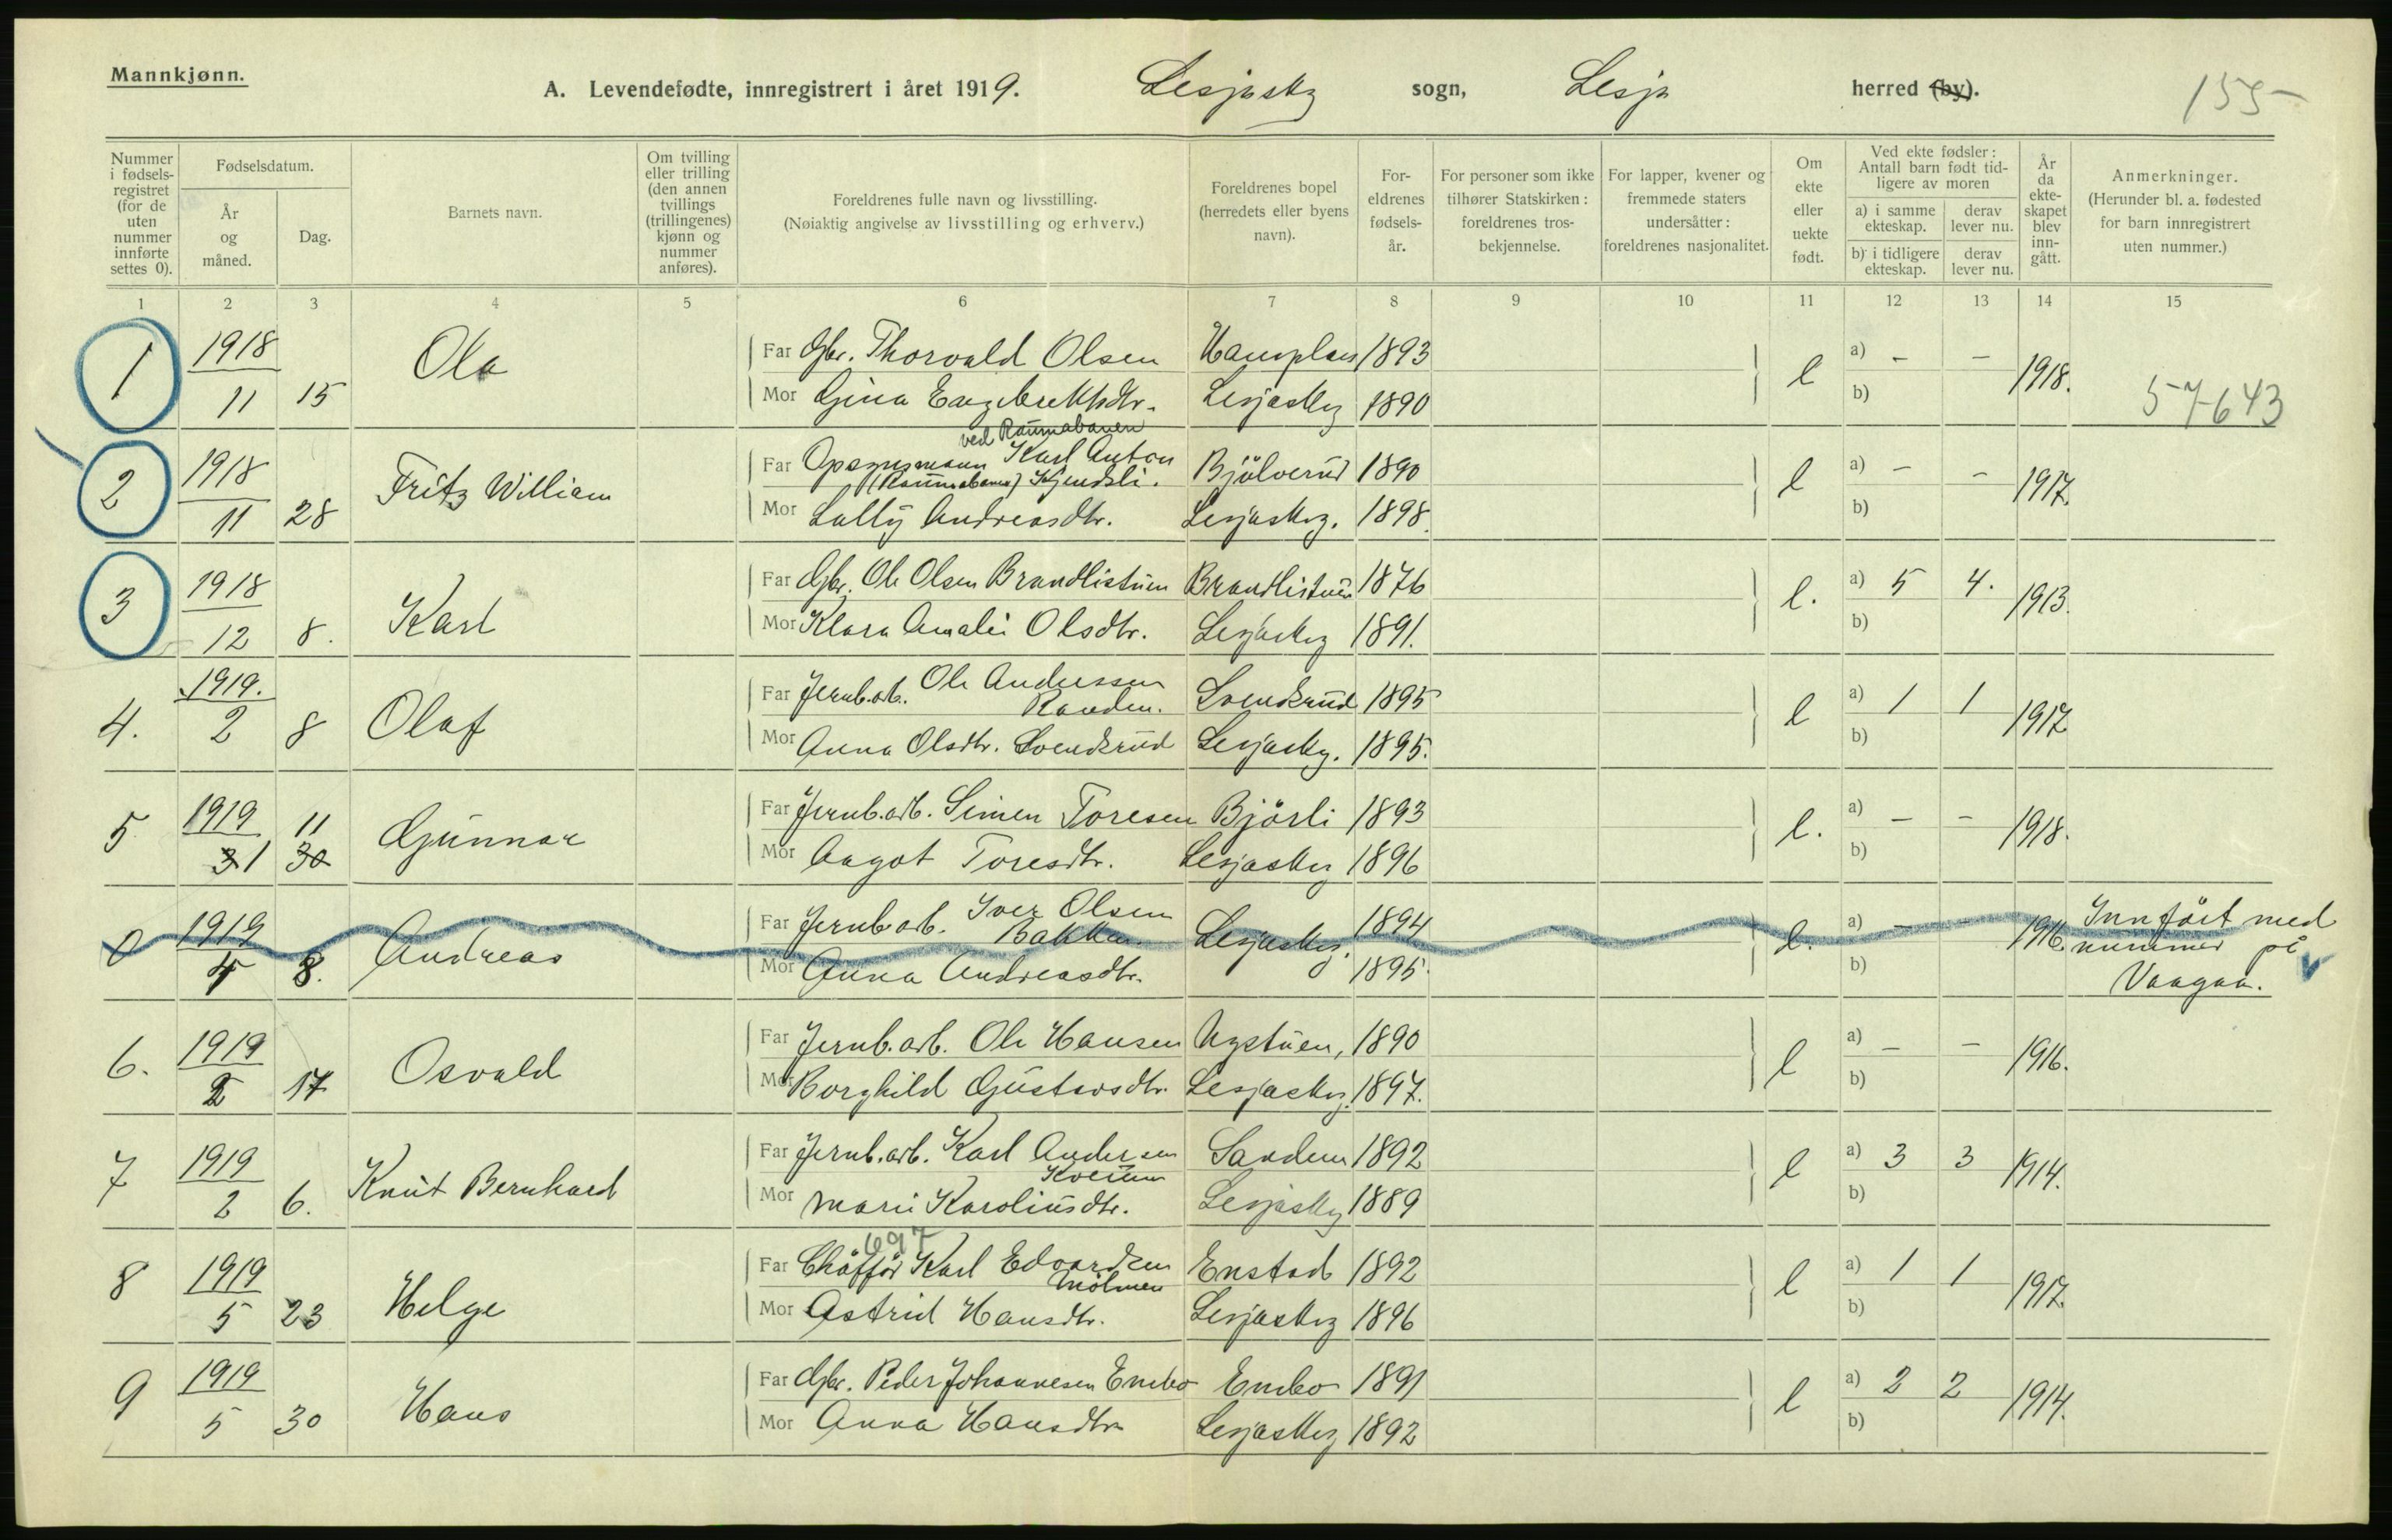 Mannkjønn.
A. Levendefødte, innregistrert i året 1919. Lesjaskg sogn, Lesja herred (by). 155
Nummer i fødselsregistret (for de uten nummer innførte settes 0).
Fødselsdatum.
År og måned.
Dag.
Barnets navn.
Om tvilling eller trilling (den annen tvillings (trillingenes) kjønn og nummer anføres).
Foreldrenes fulle navn og livsstilling.
(Nøiaktig angivelse av livsstilling og erhverv.)
Foreldrenes bopel (herredets eller byens navn).
Foreldrenes fødselsår.
For personer som ikke tilhører Statskirken: foreldrenes trosbekjennelse.
For lapper, kvener og fremmede staters undersåtter: foreldrenes nasjonalitet.
Om ekte eller uekte født.
Ved ekte fødsler: Antall barn født tidligere av moren
a) i samme ekteskap.
derav lever nu.
b) i tidligere ekteskap.
derav lever nu.
År da ekteskapet blev inngått.
Anmerkninger.
(Herunder bl. a. fødested for barn innregistrert uten nummer.)
1 2 3 4 5 6 7 8 9 10 11 12 13 14 15
1 1918 11 15 Ola
Far Gbr. Thorvald Olsen 1893 e a) - - 1918.
Mor Gina Engebrektsdtr. Lesjaskg 1890 b) 57643
2 1918 11 28 Fritz William
ved Raumabanen
Far Opsynsmann Karl Anton Bjölverud 1890 e a) - - 1917.
(Raumabanen) Kjendsli.
Mor Lally Andreasdtr. Lesjaskg. 1898. b)
3 1918 12 8. Karl
Far Gbr. Ole Olsen Brandlistuen Brandlistuen 1876 e. a) 5 4. 1913.
Mor Klara Amalie Olsdtr. Lesjaskg 1891. b)
4. 1919. 2 8 Olaf
Far Jernb.arb. Ole Anderssen Randen. Svendsrud 1895 e a) 1 1 1917
Mor Anna Olsdtr. Svendsrud Lesjaskg. 1895. b)
5 1919 31 11 30 Gunnar
Far Jernb.arb. Simen Toresen Bjórli 1893 e. a) - - 1918.
Mor Aagot Toresdtr. Lesjaskg 1896 b)
0 1919 4 8. Andreas
Far Jernb.arb. Iver Olsen Bakken. Lesjaskg. 1894 e. a) - - 1916. Innfört med nummer på
Mor Anna Andreasdtr. 1895. b) Vaagaa.
6. 1919 2 17 Osvald
Far Jernb.arb. Ole Hansen Nystuen, 1890 e a) - - 1916.
Mor Borghild Gustavsdtr. Lesjaskg. 1897. b)
7 1919 2 6. Knut Bernhard
Far Jernb.arb. Karl Andersen Kverum Sanden 1892 e a) 3 3 1914.
Mor Marie Karoliusdtr. Lesjaskg 1889 b)
697
8 1919 5 23 Helge
Far Chåffør Karl Edvardsen Mölmen Enstad 1892 e a) 1 1 1917.
Mor Astrid Hansdtr. Lesjaskg 1896 b)
9 1919 5 30 Hans
Far Gbr. Peder Johannesen Enebo Enebo 1891 e a) 2 2 1914.
Mor Anna Hansdtr. Lesjaskg 1892 b)